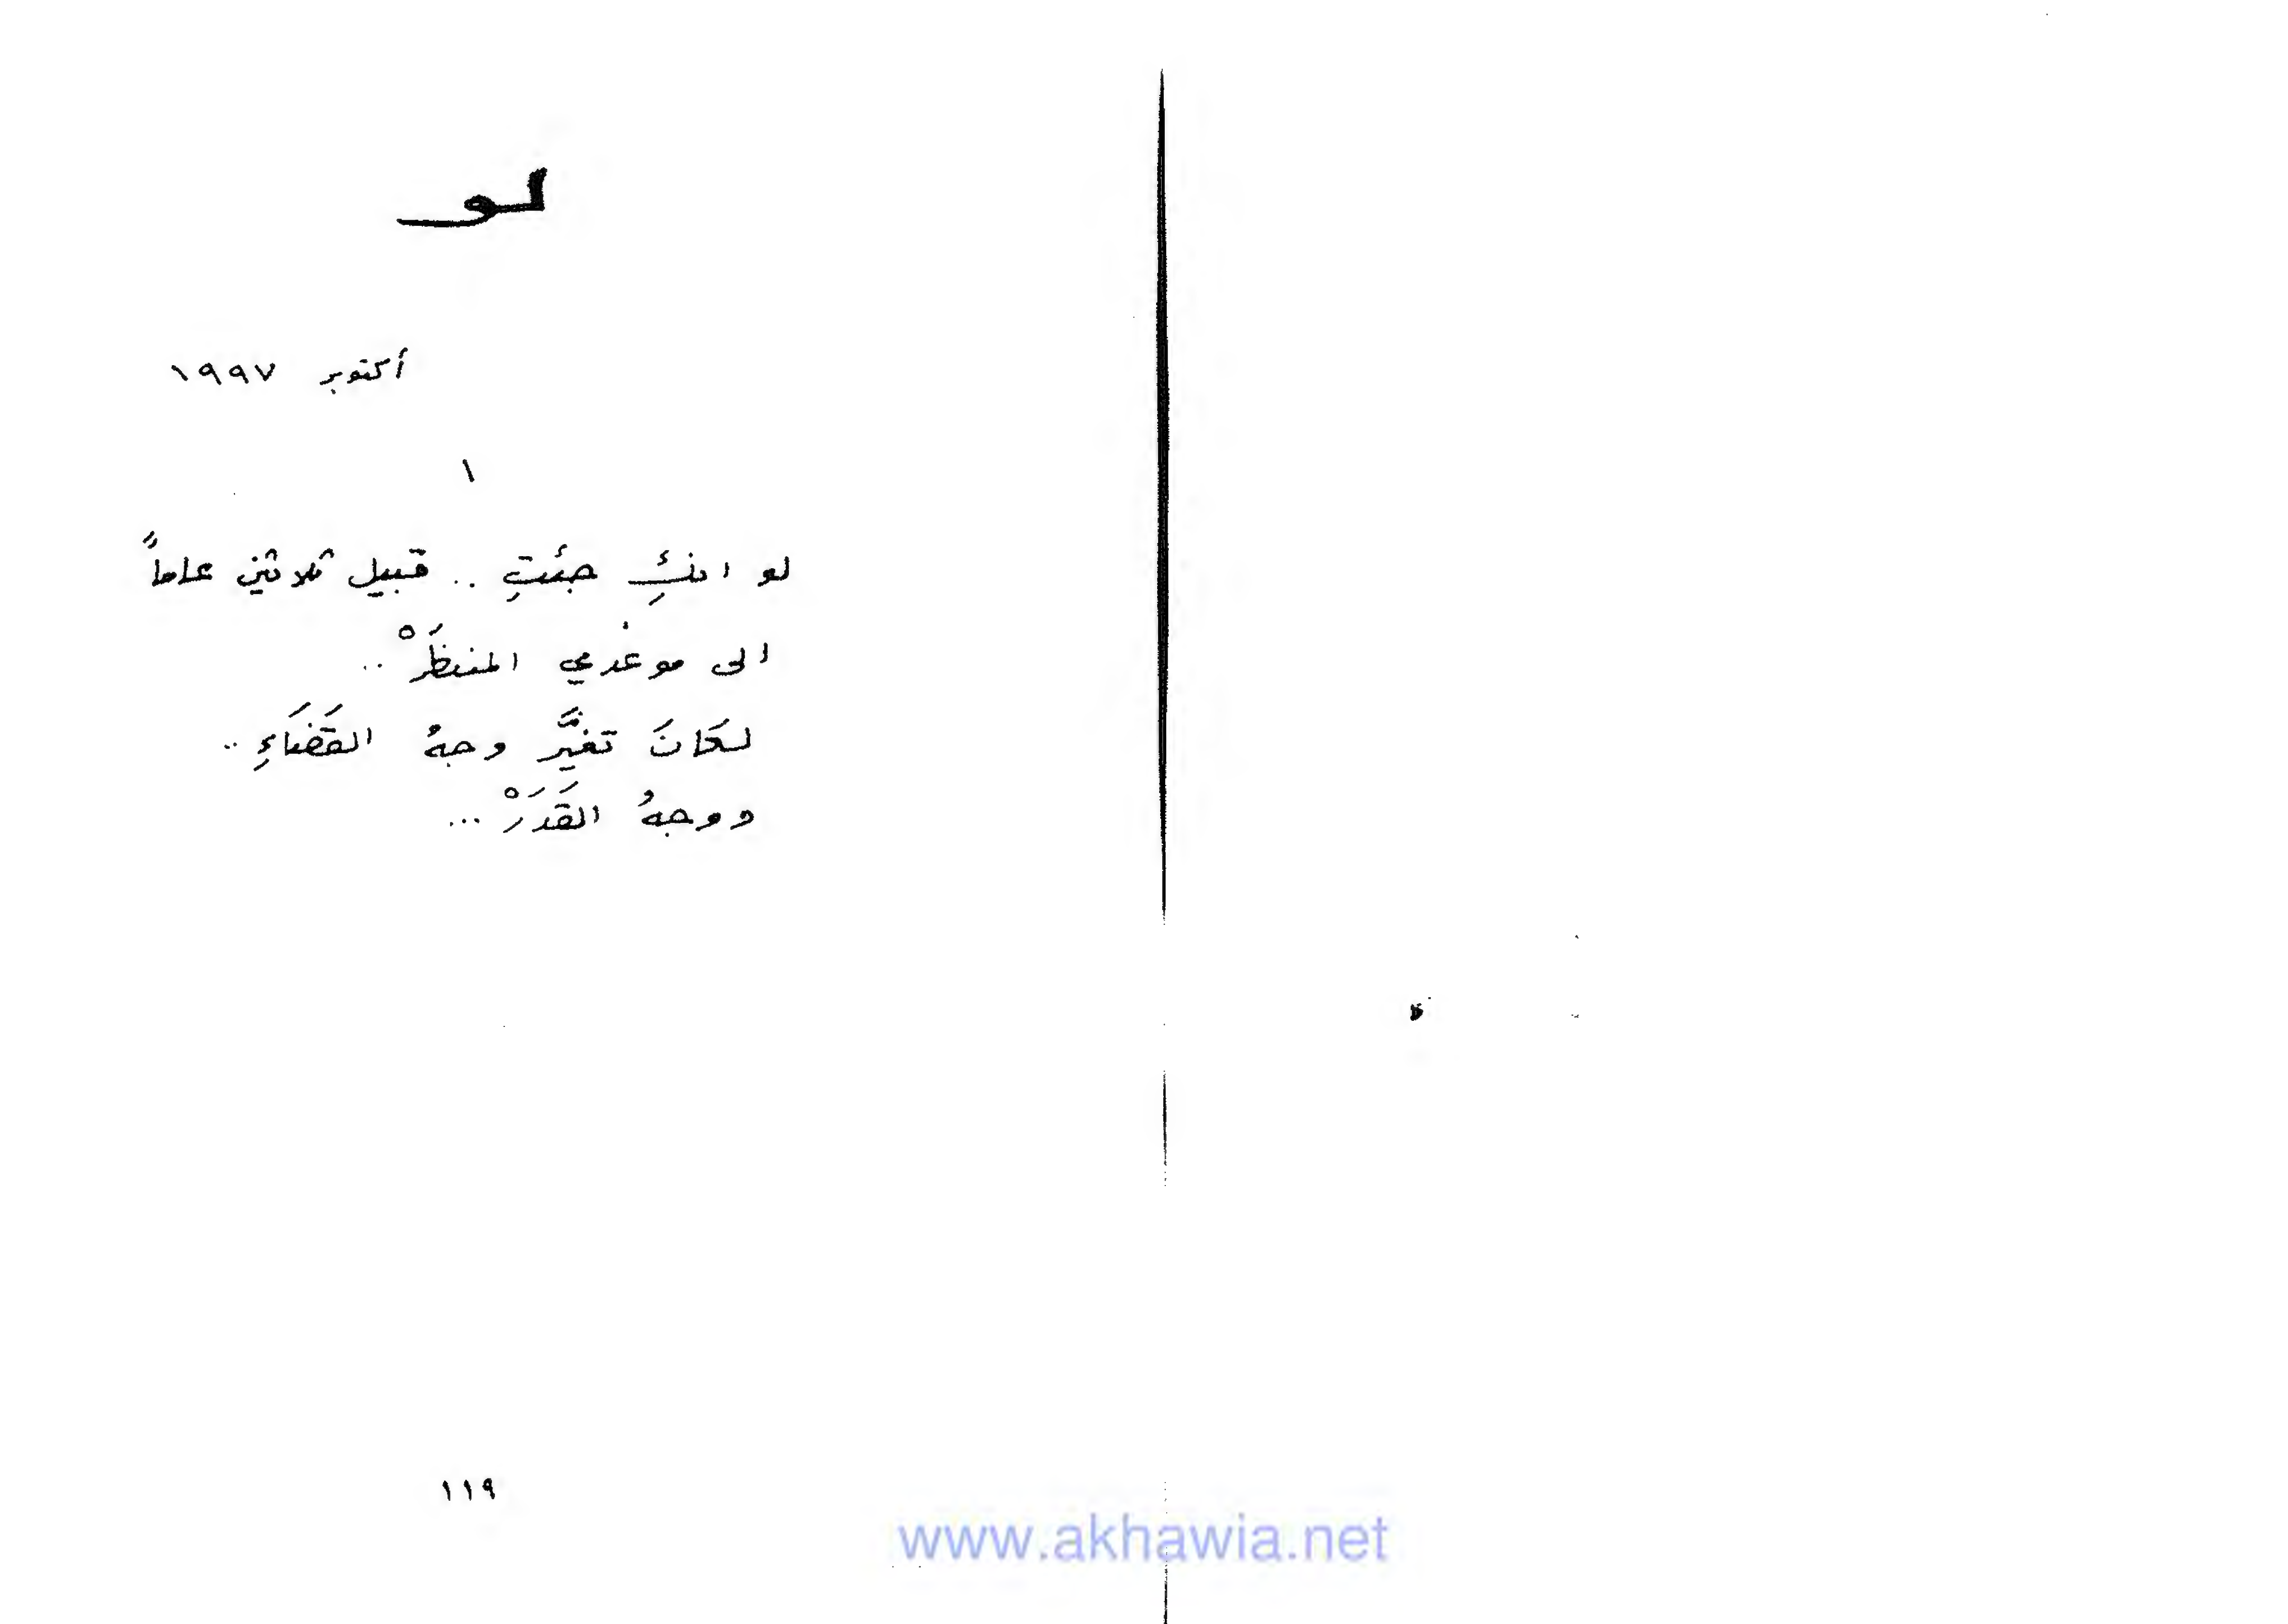 لو
أكتوبر ١٩٩٧
١
لو انكِ جئتِ .. قبيل ثلاثين عاماً
الى موعدي المنتظَرْ ..
لكانَ تغيَّر وجهُ القَضَاءِ ..
ووجهُ القَدَرْ ...
١١٩
www.akhawia.net